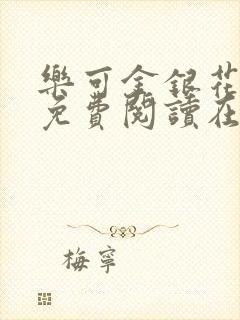 樂可金銀花
免費閱讀在
梅寧